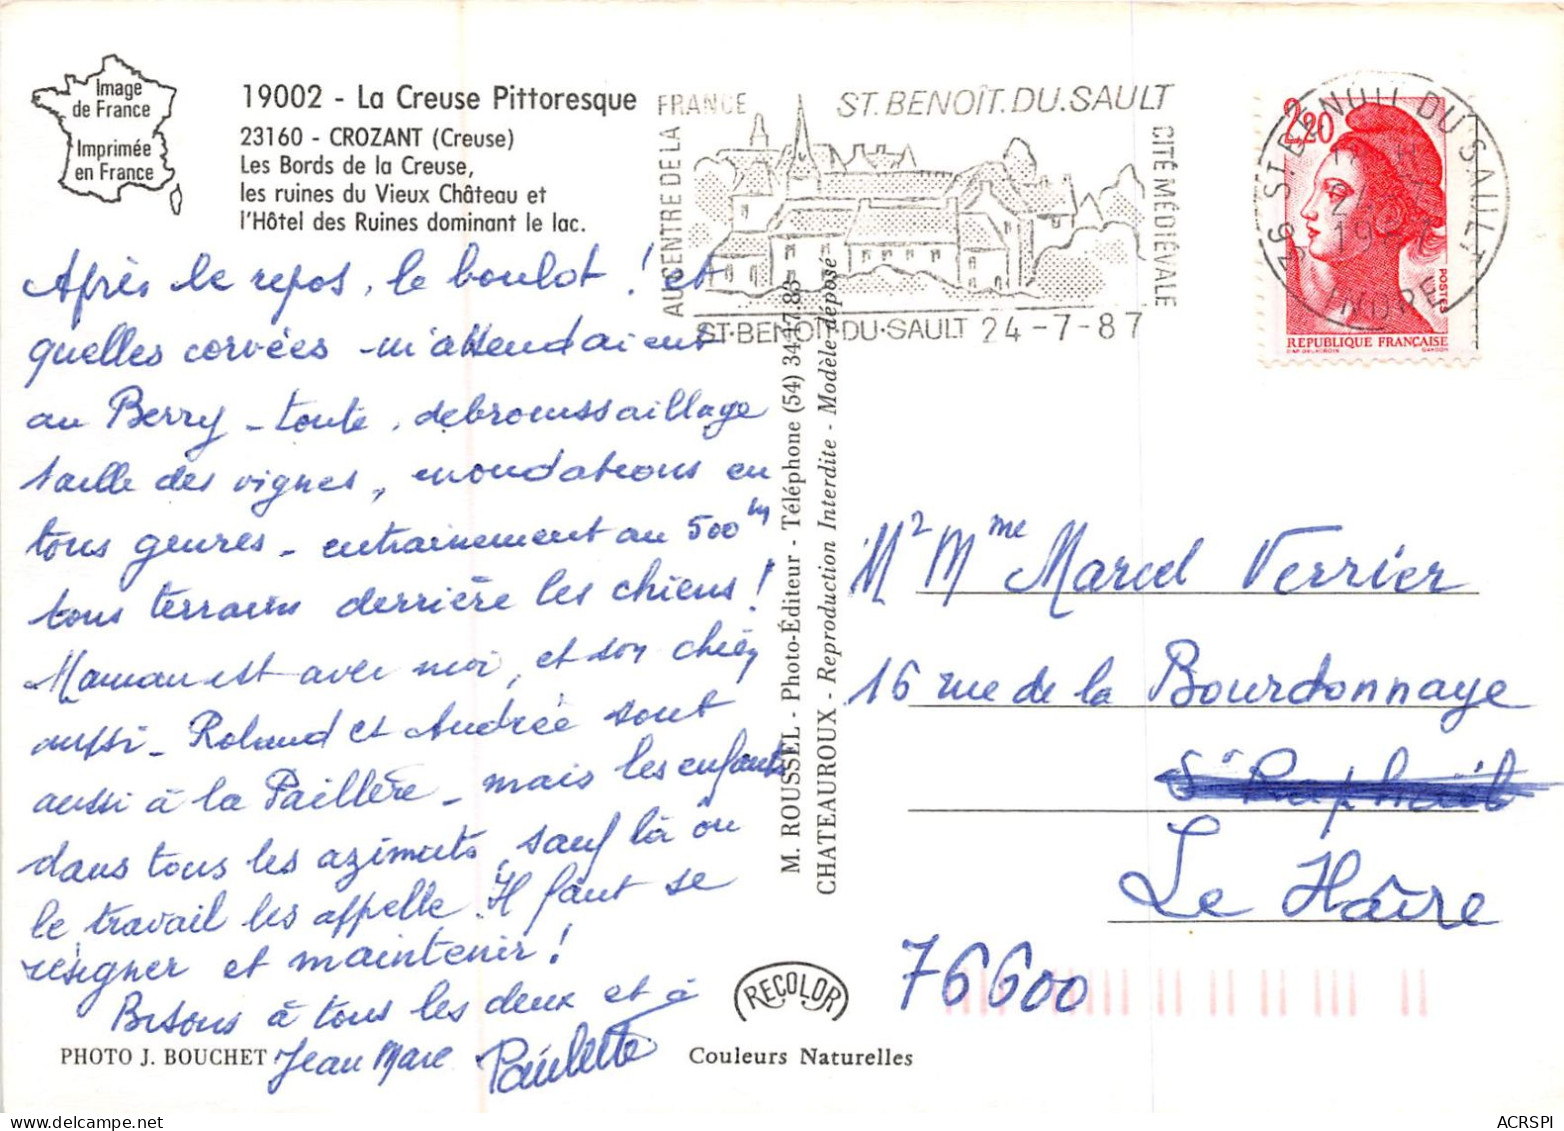 Image
de France
Imprimée
en France
19002 - La Creuse Pittoresque
23160 - CROZANT (Creuse)
Les Bords de la Creuse,
les ruines du Vieux Château et
l'Hôtel des Ruines dominant le lac.
AU CENTRE DE LA FRANCE
ST. BENOÎT. DU. SAULT
CITÉ MÉDIÉVALE
ST-BENOIT-DU-SAULT 24-7-87
36 ST. BENOIT DU SAULT
1987
INDRE
2,20
POSTES
REPUBLIQUE FRANÇAISE
Après le repos, le boulot ! et
quelles corvées m'attendaient
au Berry - toute, debroussaillage
taille des vignes, inondations en
tous genres - entrainement au 500 m
tous terrains derrière les chiens !
Maman est avec moi, et son chien
aussi - Roland et Andrée sont
aussi à la Paillère - mais les enfants
dans tous les azimuts, sauf là où
le travail les appelle. Il faut se
résigner et maintenir !
Bisous à tous les deux et à
Jean Marc Paulette
PHOTO J. BOUCHET
M. ROUSSEL - Photo-Éditeur - Téléphone (54) 34.17.83
CHATEAUROUX - Reproduction Interdite - Modèle déposé
RECOLOR
Couleurs Naturelles
Mr Mme Marcel Verrier
16 rue de la Bourdonnaye
St Raphaël
Le Hâvre
76600
ACRSPI